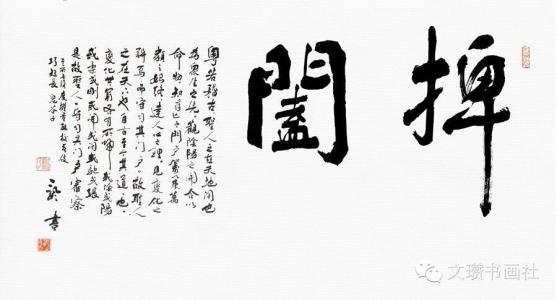 捭闔
粤若稽古聖人之在天地間也
為眾生之先觀陰陽之開合以
命物知存亡之門戶籌策萬
類之終始達人心之理見變化之
朕焉而守司其門戶故聖人
之在天下也自古至今其道一也
變化無窮各有所歸或陰或陽
或柔或剛或開或閉或弛或張
是故聖人一守司其門戶審察
其所先後度權量能校其伎
巧短長 鬼谷子
書
文瓒书画社